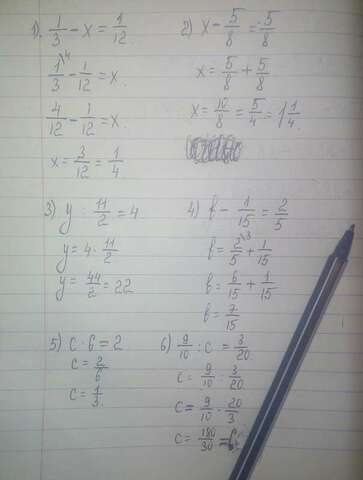 1) 1/3 - x = 1/12
1/3\4 - 1/12 = x
4/12 - 1/12 = x
x = 3/12 = 1/4
2) x - 5/8 = 5/8
x = 5/8 + 5/8
x = 10/8 = 5/4 = 1 1/4
3) y : 11/2 = 4
y = 4 · 11/2
y = 44/2 = 22
4) b - 1/15 = 2/5
b = 2/5\3 + 1/15
b = 6/15 + 1/15
b = 7/15
5) c · 6 = 2
c = 2/6
c = 1/3
6) 9/10 : c = 3/20
c = 9/10 : 3/20
c = 9/10 · 20/3
c = 180/30 =